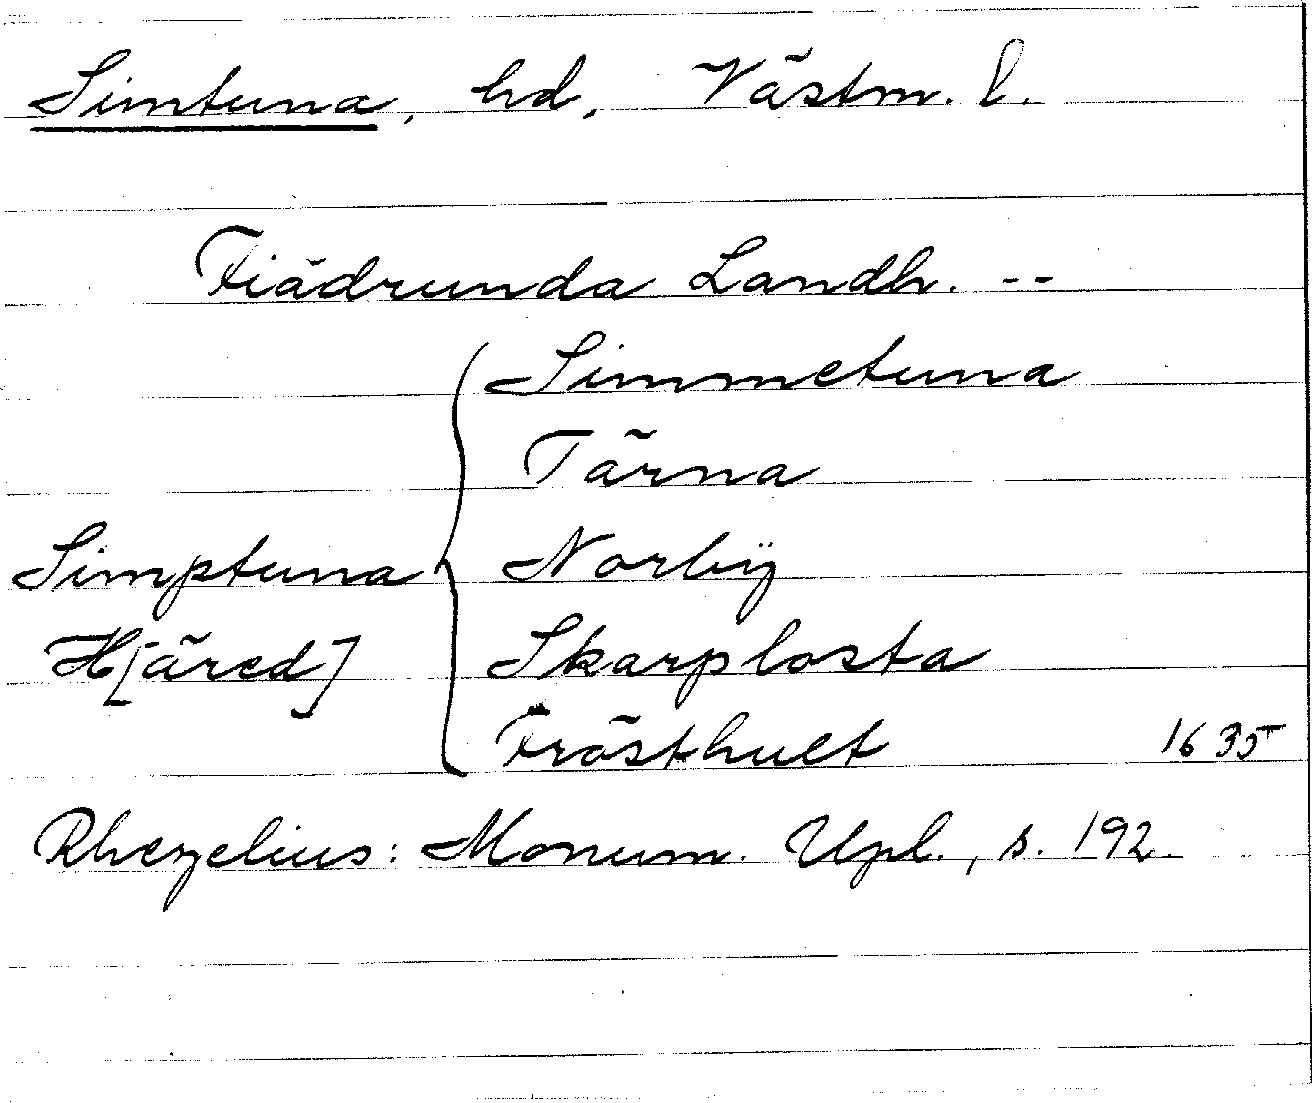 Simtuna, hd, Västm. l.
Fiädrunda Landh. --
Simmetuna
Tärna
Simptuna { Norbÿ
H[äred] Skarplosta
Frösthult 1635
Rhezelius: Monum. Upl., s. 192.